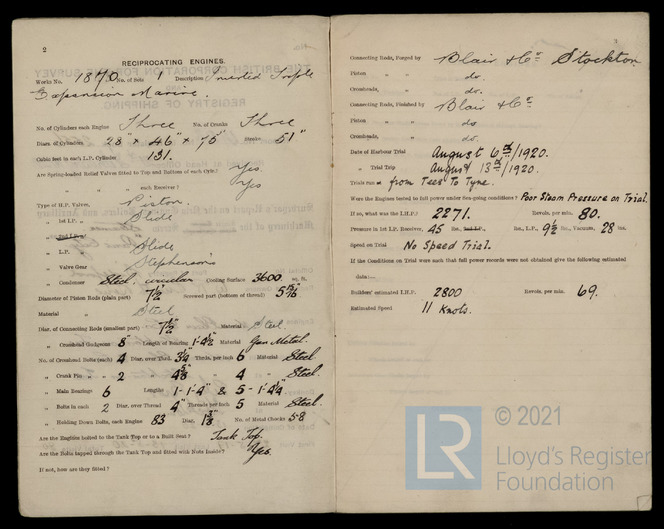 2
RECIPROCATING ENGINES.
Works No. 1870 No. of Sets 1 Description Inverted Triple
Expansion Marine.
No. of Cylinders each Engine Three No. of Cranks Three
Diars. of Cylinders 28" × 46" × 75" Stroke 51"
Cubic feet in each L.P. Cylinder 131.
Are Spring-loaded Relief Valves fitted to Top and Bottom of each Cylr.? Yes.
" " " each Receiver? Yes
Type of H.P. Valves, Piston.
" 1st I.P. " Slide
" 2nd I.P. "
" L.P. " Slide
" Valve Gear Stephenson's
" Condenser Steel, circular Cooling Surface 3600 sq. ft.
Diameter of Piston Rods (plain part) 7½" Screwed part (bottom of thread)
Material " Steel
Diar. of Connecting Rods (smallest part) 7½" Material Steel.
" Crosshead Gudgeons 8" Length of Bearing 1-4½" Material Gun Metal.
No. of Crosshead Bolts (each) 4 Diar. over Thrd. 3¼" Thrds. per inch 6 Material Steel
" Crank Pin " " 2 " 4⅝" " 4 " Steel.
" Main Bearings 6 Lengths 1-1¼" & 5-1¼".
" Bolts in each 2 Diar. over Thread 4" Threads per inch 5 Material Steel.
" Holding Down Bolts, each Engine 83 Diar. No. of Metal Chocks 58
Are the Engines bolted to the Tank Top or to a Built Seat? Tank Top.
Are the Bolts tapped through the Tank Top and fitted with Nuts Inside? Yes.
If not, how are they fitted?
Connecting Rods, Forged by Blair & Co. Stockton.
Piston " " do.
Crossheads, " do.
Connecting Rods, Finished by Blair & Co.
Piston " " do
Crossheads, " do.
Date of Harbour Trial August 6th/1920.
" Trial Trip August 13th/1920.
Trials run at from Tees To Tyne.
Were the Engines tested to full power under Sea-going conditions? Poor Steam Pressure on Trial.
If so, what was the I.H.P.? 2271. Revols. per min. 80.
Pressure in 1st I.P. Receiver, 45 lbs., 2nd I.P., lbs., L.P., 9½ lbs., Vacuum, 28 ins.
Speed on Trial No Speed Trial.
If the Conditions on Trial were such that full power records were not obtained give the following estimated
data:—
Builders' estimated I.H.P. 2800 Revols. per min. 69.
Estimated Speed 11 Knots.
LR
© 2021
Lloyd's Register
Foundation